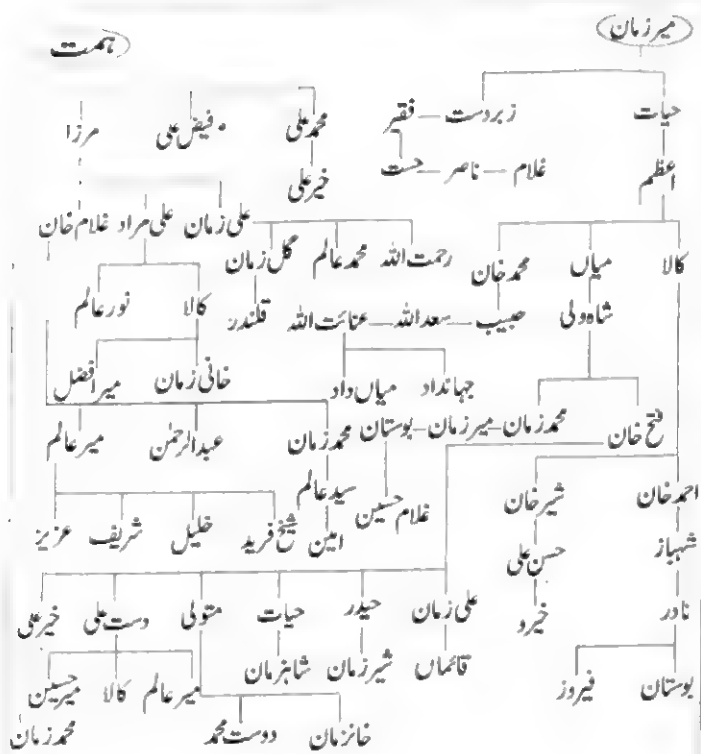 میرزمان ہمت
حیات زبردست – فقیر محمد علی فیض علی مرزا
اعظم غلام – ناصر – حست خیر علی
علی زمان علی مراد غلام خان
کالا میاں محمد خان رحمت اللہ محمد عالم گل زمان
شاہ ولی حبیب – سعد اللہ – عنائت اللہ قلندر کالا نور عالم
جہانداد میاں داد خانی زمان میر افضل
فتح خان محمد زمان – میر زمان – بوستان محمد زمان عبدالرحمٰن میر عالم
احمد خان شیر خان غلام حسین سید عالم
شہباز حسن علی امین شیخ فرید خلیل شریف عزیز
نادر خیرو علی زمان حیدر حیات متولی دست علی خیر علی
بوستان فیروز قائماں شیر زمان شاہزمان میر عالم کالا میر حسین
خانزمان دوست محمد محمد زمان